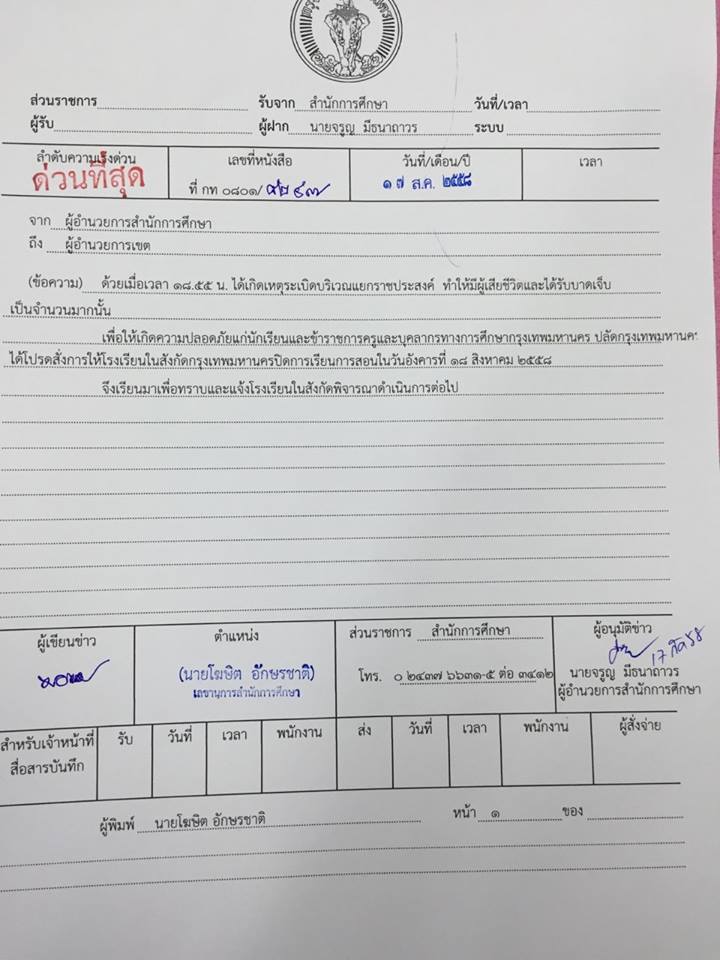 ส่วนราชการ รับจาก สำนักการศึกษา วันที่/เวลา
ผู้รับ ผู้ฝาก นายจรูญ มีธนาถาวร ระบบ
ลำดับความเร่งด่วน เลขที่หนังสือ วันที่/เดือน/ปี เวลา
ด่วนที่สุด ที่ กท ๐๘๐๑/ ๑๗ ส.ค. ๒๕๕๘
จาก ผู้อำนวยการสำนักการศึกษา
ถึง ผู้อำนวยการเขต
(ข้อความ) ด้วยเมื่อเวลา ๑๘.๕๕ น. ได้เกิดเหตุระเบิดบริเวณแยกราชประสงค์ ทำให้มีผู้เสียชีวิตและได้รับบาดเจ็บ
เป็นจำนวนมากนั้น
เพื่อให้เกิดความปลอดภัยแก่นักเรียนและข้าราชการครูและบุคลากรทางการศึกษากรุงเทพมหานคร ปลัดกรุงเทพมหานคร
ได้โปรดสั่งการให้โรงเรียนในสังกัดกรุงเทพมหานครปิดการเรียนการสอนในวันอังคารที่ ๑๘ สิงหาคม ๒๕๕๘
จึงเรียนมาเพื่อทราบและแจ้งโรงเรียนในสังกัดพิจารณาดำเนินการต่อไป
ผู้เขียนข่าว ตำแหน่ง ส่วนราชการ สำนักการศึกษา ผู้อนุมัติข่าว
17 ส.ค. 58
(นายโฆษิต อักษรชาติ) โทร. ๐ ๒๔๓๗ ๖๖๓๑-๕ ต่อ ๓๔๑๒ นายจรูญ มีธนาถาวร
เลขานุการสำนักการศึกษา ผู้อำนวยการสำนักการศึกษา
สำหรับเจ้าหน้าที่ รับ วันที่ เวลา พนักงาน ส่ง วันที่ เวลา พนักงาน ผู้สั่งจ่าย
สื่อสารบันทึก
ผู้พิมพ์ นายโฆษิต อักษรชาติ หน้า ๑ ของ